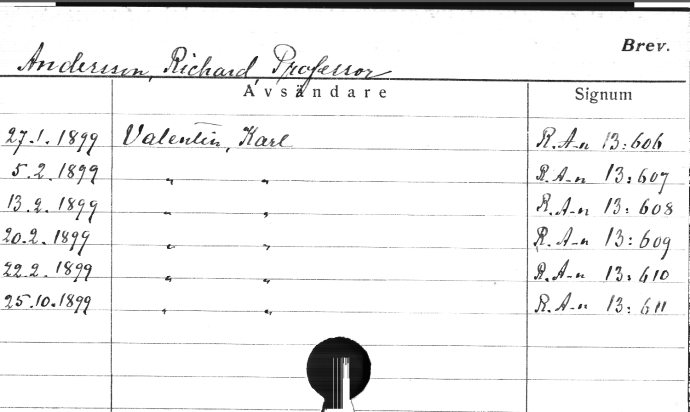 Brev.
Andersson, Richard, Professor
Avsändare Signum
27.1.1899 Valentin, Karl R.A-n 13:606
5.2.1899 " " R.A-n 13:607
13.2.1899 " " R.A-n 13:608
20.2.1899 " " R.A-n 13:609
22.2.1899 " " R.A-n 13:610
25.10.1899 " " R.A-n 13:611